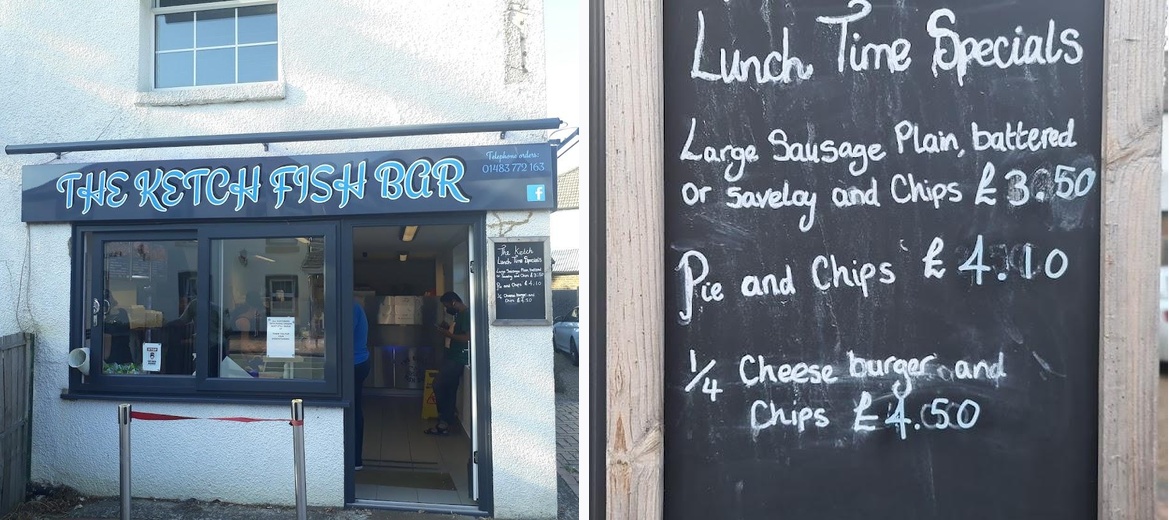 Telephone orders:
01483 772 163
THE KETCH FISH BAR
f
The Ketch
Lunch Time Specials
Large Sausage Plain, battered
or Saveloy and Chips £3.50
Pie and Chips £4.10
1/4 Cheese burger and
Chips £4.50
Lunch Time Specials
Large Sausage Plain, battered
or saveloy and Chips £3.50
Pie and Chips £4.10
1/4 Cheese burger and
Chips £4.50